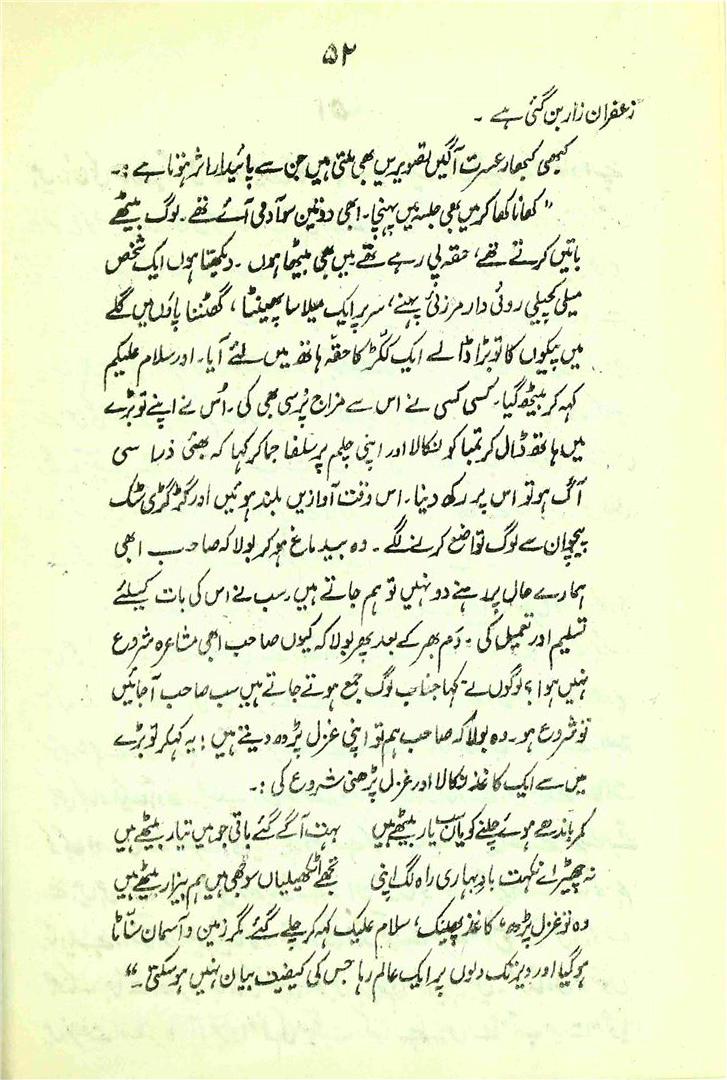 ۵۲
زعفران زار بن گئی ہے ۔
کبھی کبھار عبرت آگیں تصویریں بھی ملتی ہیں جن سے پائیدار اثر ہوتا ہے :۔
" کھانا کھا کر میں بھی جلسہ میں پہنچا۔ ابھی دو تین سو آدمی آئے تھے ۔ لوگ بیٹھے
باتیں کرتے تھے، حقہ پی رہے تھے میں بھی بیٹھا ہوں ۔ دیکھتا ہوں ایک شخص
میلی کچیلی روئی دار مرزئی پہنے، سر پر ایک میلا سا پھینٹا، گھٹنا پاؤں میں گلے
میں پیکوں کا توبڑا ڈالے ایک ککڑ کا حقہ ہاتھ میں لئے آیا۔ اور سلام علیکم
کہہ کر بیٹھ گیا۔ کسی کسی نے اس سے مزاج پُرسی بھی کی۔ اُس نے اپنے توبڑے
میں ہاتھ ڈال کر تمبا کو نکالا اور اپنی چلم پر سلفا جما کر کہا کہ بھئی ذرا سی
آگ ہو تو اس پر رکھ دینا۔ اس وقت آوازیں بلند ہوئیں اور گڑ گڑی سٹک
پیچوان سے لوگ تواضع کرنے لگے ۔ وہ بیدماغ ہو کر بولا کہ صاحب ابھی
ہمارے حال پر رہنے دو نہیں تو ہم جاتے ہیں۔ سب نے اس کی بات کیلئے
تسلیم اور تعمیل کی ۔ دَم بھر کے بعد پھر بولا کہ کیوں صاحب ابھی مشاعرہ شروع
نہیں ہوا؟ لوگوں نے کہا جناب لوگ جمع ہوتے جاتے ہیں سب صاحب آجائیں
تو شروع ہو۔ وہ بولا کہ صاحب ہم تو اپنی غزل پڑھ دیتے ہیں؛ یہ کہکر توبڑے
میں سے ایک کاغذ نکالا اور غزل پڑھنی شروع کی :۔
کمر باندھے ہوئے چلنے کو یاں سب یار بیٹھے ہیں بہت آگے گئے باقی جو ہیں تیار بیٹھے ہیں
نہ چھیڑ اے نکہت بادِ بہاری راہ لگ اپنی تجھے اٹکھیلیاں سوجھی ہیں ہم بیزار بیٹھے ہیں
وہ تو غزل پڑھ، کاغذ پھینک، سلام علیک کہہ کر چلے گئے مگر زمین و آسمان سنّاٹا
ہو گیا اور دیر تک دلوں پر ایک عالم رہا جس کی کیفیت بیان نہیں ہو سکتی ۔"